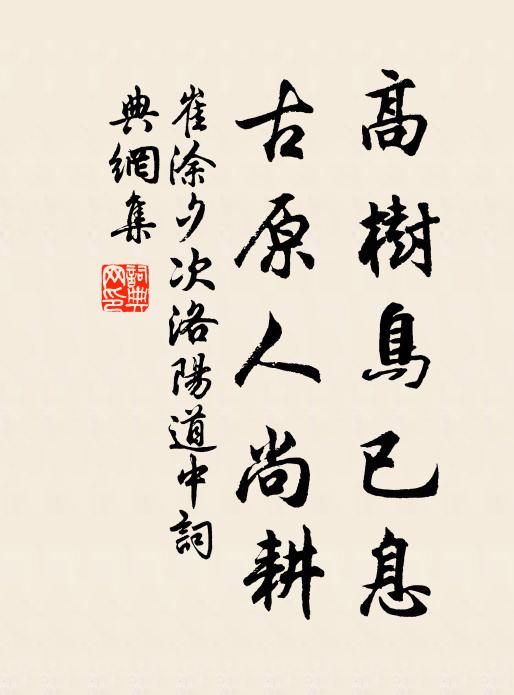 高樹鳥已息
古原人尚耕
崔涂夕次洛陽道中詞
典網集
詞典網印